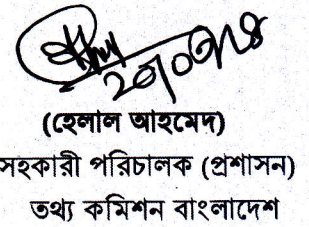 (হেলাল আহমেদ)
সহকারী পরিচালক (প্রশাসন)
তথ্য কমিশন বাংলাদেশ